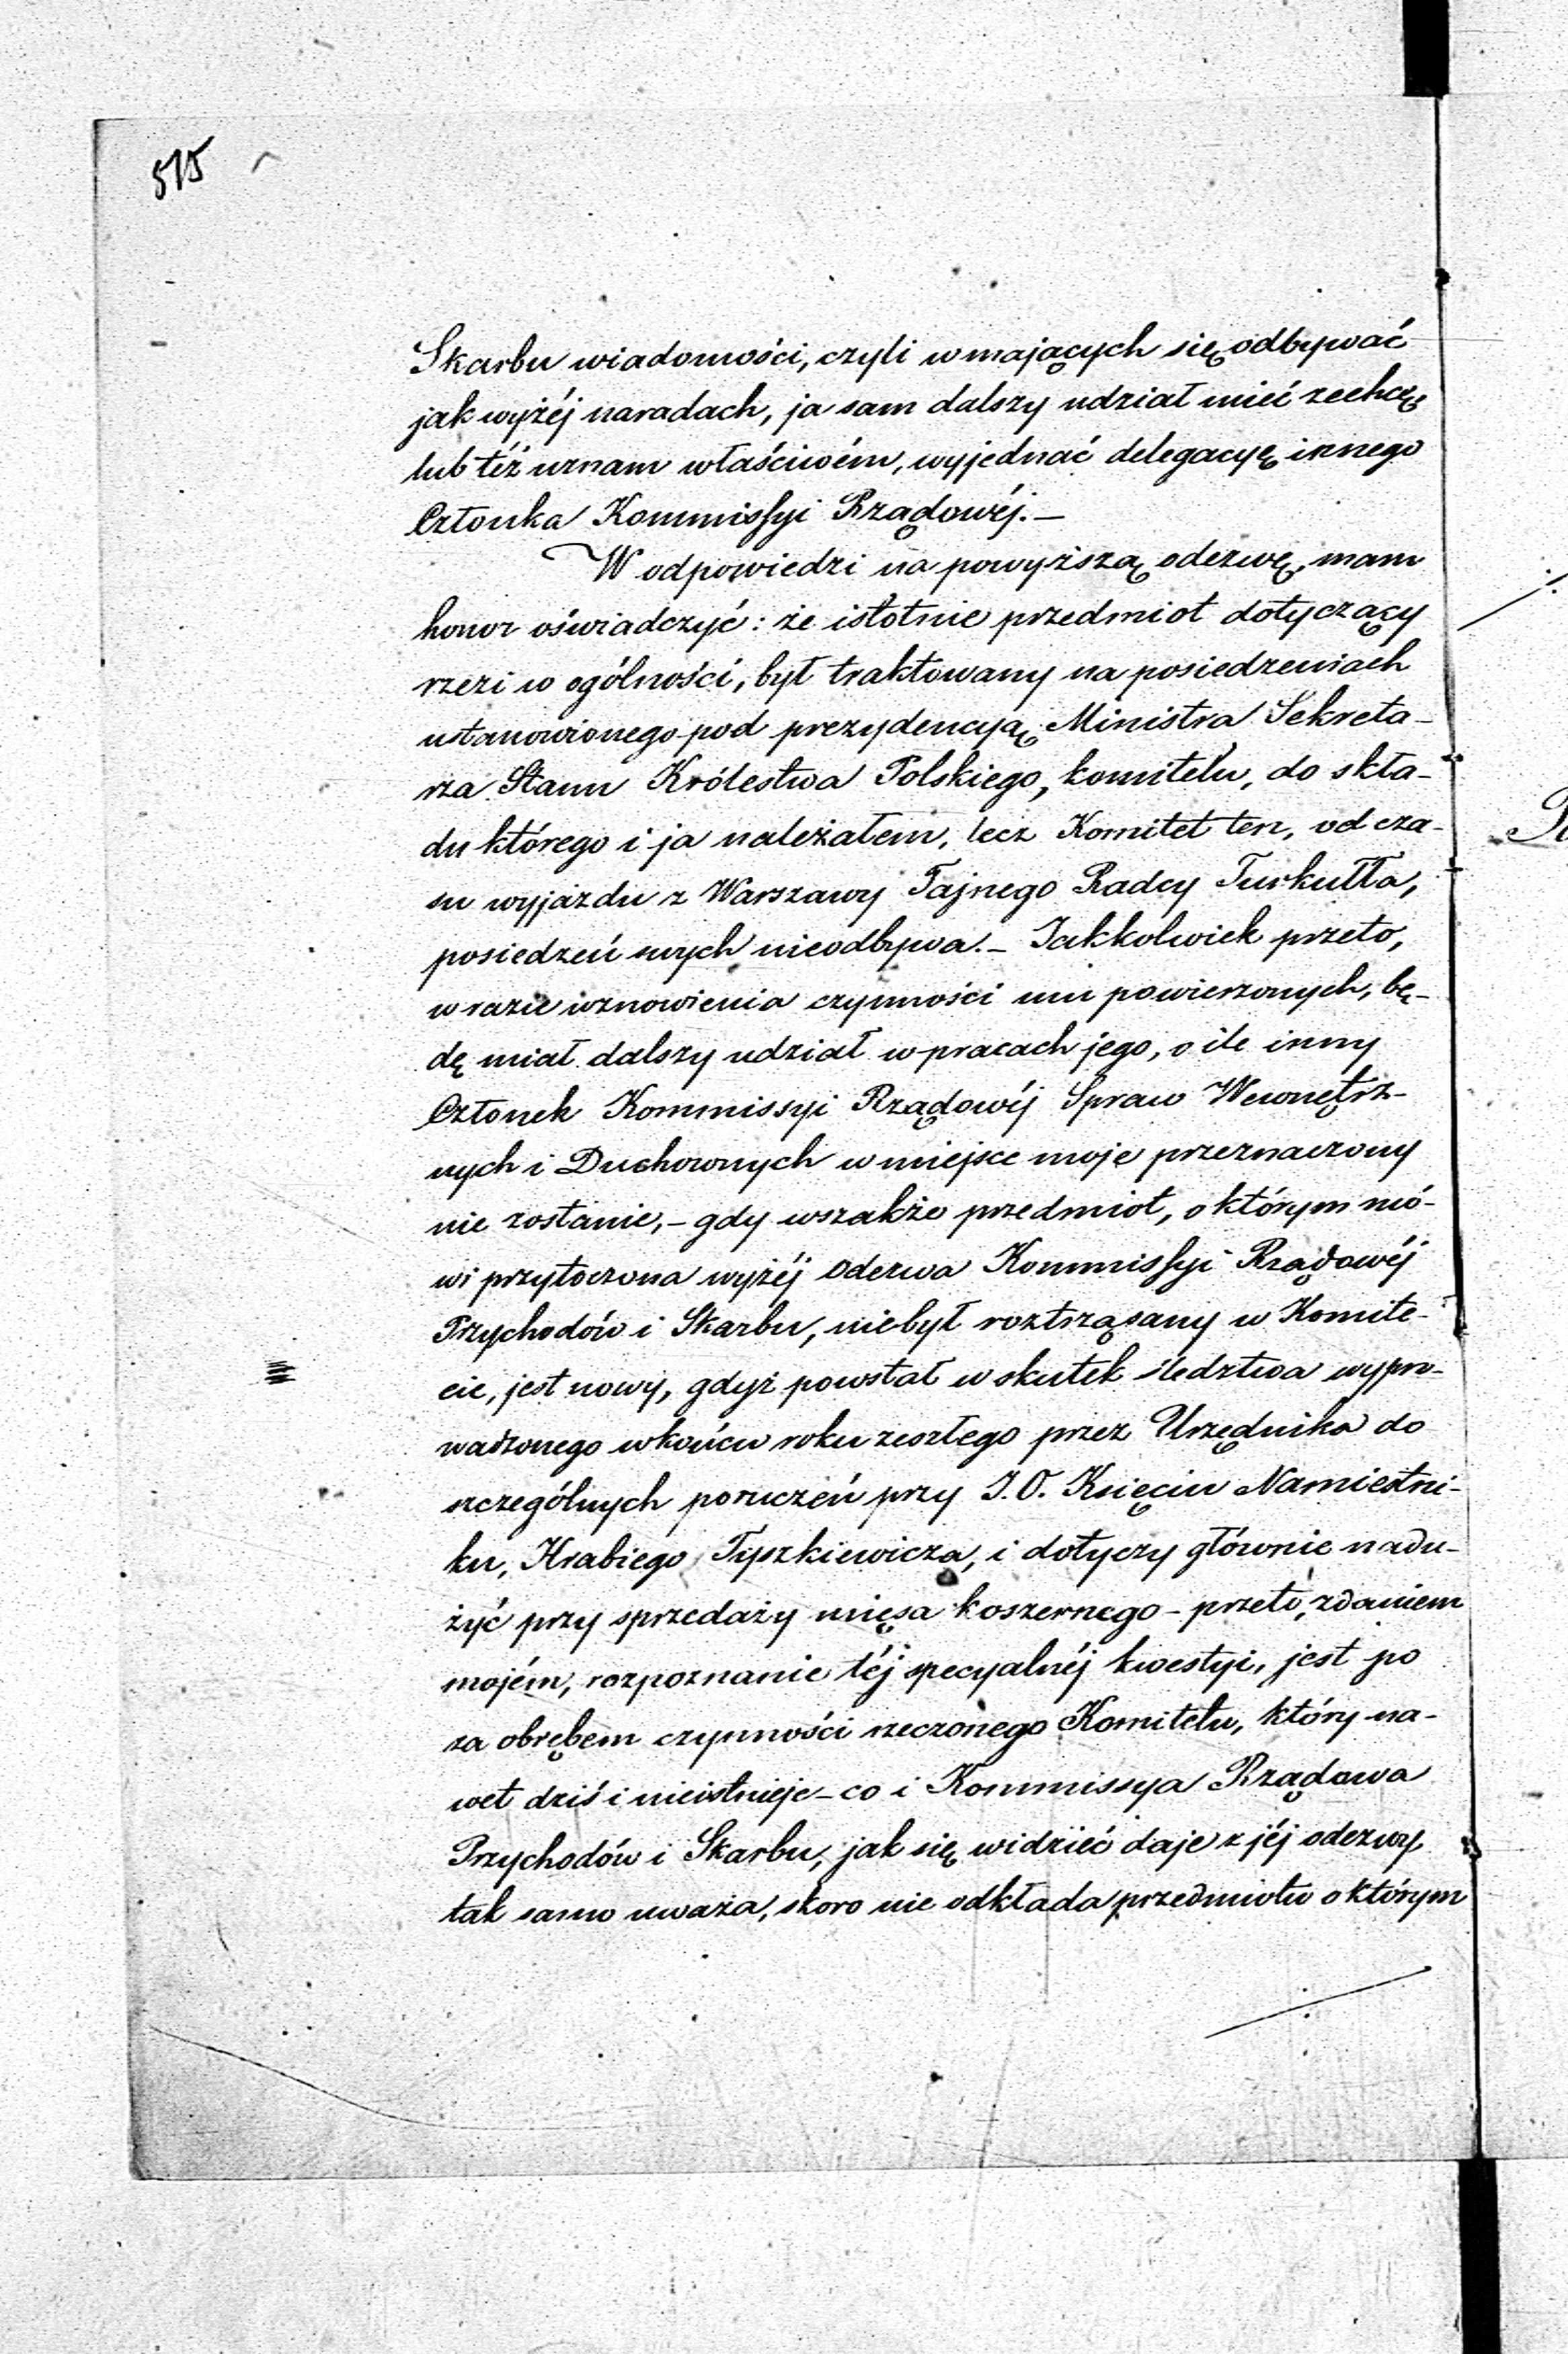 515
Skarbu wiadomości, czyli w mających się odbywać
jak wyżéj naradach, ja sam dalszy udział mieć zechcę
lub téż uznam właściwém, wyjednać delegacyę innego
Członka Kommissyi Rządowéj.—
W odpowiedzi na powyższą odezwę, mam
honor oświadczyć: że istotnie przedmiot dotyczący
rzezi w ogólności, był traktowany na posiedzeniach
ustanowionego pod prezydencyą Ministra Sekreta-
rza Stanu Królestwa Polskiego, komitetu, do skła-
du którego i ja należałem, lecz Komitet ten, od cza-
su wyjazdu z Warszawy Tajnego Radcy Turkułła,
posiedzeń swych nieodbywa.— Jakkolwiek przeto,
w razie wznowienia czynności mu powierzonych, bę-
dę miał dalszy udział w pracach jego, o ile inny
Członek Kommissyi Rządowéj Spraw Wewnętrz-
nych i Duchownych w miejsce moje przeznaczony
nie zostanie,— gdy wszakże przedmiot, o którym mó-
wi przytoczona wyżéj odezwa Kommissyi Rządowéj
Przychodów i Skarbu, niebył roztrząsany w Komite-
cie, jest nowy, gdyż powstał w skutek śledztwa wypro-
wadzonego w końcu roku zeszłego przez Urzędnika do
szczególnych poruczeń przy J.O. Księciu Namiestni-
ku, Hrabiego Tyszkiewicza, i dotyczy głównie nadu-
żyć przy sprzedaży mięsa koszernego — przeto, zdaniem
mojém, rozpoznanie téj specyalnéj kwestyi, jest po
za obrębem czynności rzeczonego Komitetu, który na-
wet dziś i nieistnieje — co i Kommissya Rządowa
Przychodów i Skarbu, jak się widzieć daje z jéj odezwy
tak samo uważa, skoro nie odkłada przedmiotu o którym